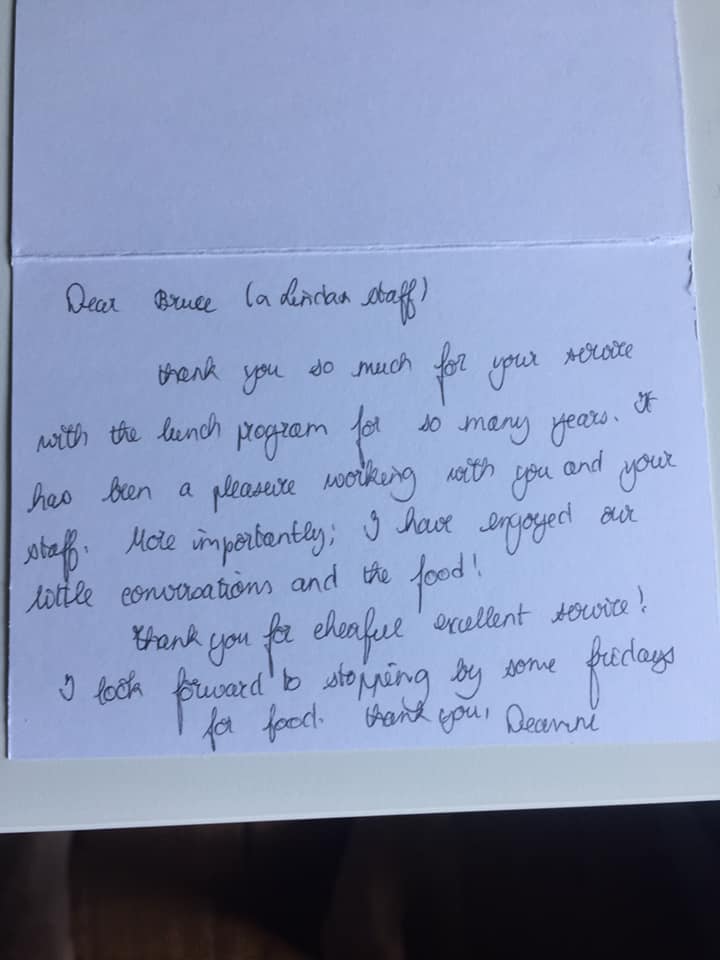 Dear Bruce (a staff)
thank you so much for your service
with the lunch program for so many years. It
has been a pleasure working with you and your
staff. More importantly; I have engoyed our
little conversations and the food!
thank you for cheaful excellent service!
I look forward to stopping by some fridays
for food. thank you, Deanne